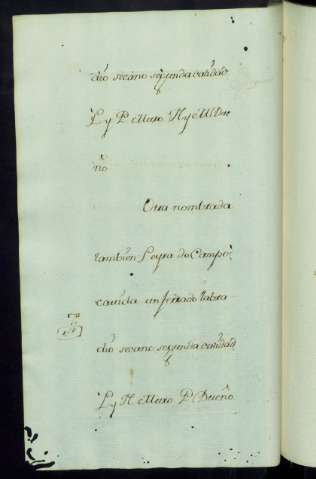 dio secano segunda calidad
L y P. Muro N y M Due
ño
Otra nombrada
tambien Leyra do Campo,
cavida un ferrado labra
dio secano segunda calidad
L y N. Muro P. Dueño